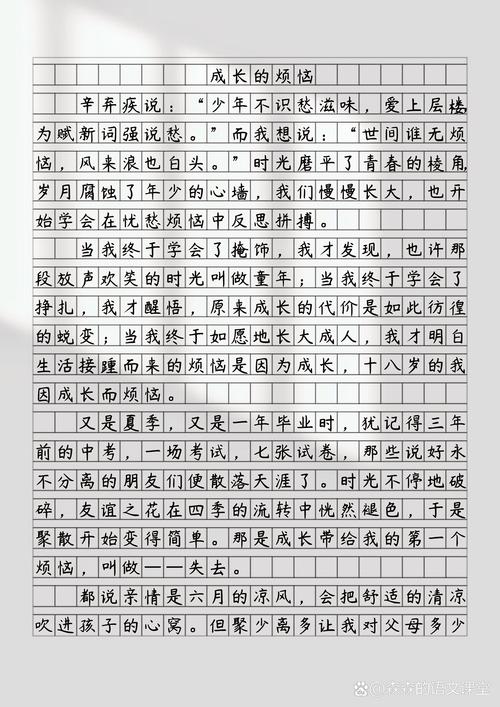 成长的烦恼
辛弃疾说：“少年不识愁滋味，爱上层楼
为赋新词强说愁。”而我想说：“世间谁无烦
恼，风来浪也白头。”时光磨平了青春的棱角
岁月腐蚀了年少的心墙，我们慢慢长大，也开
始学会在忧愁烦恼中反思拼搏。
当我终于学会了掩饰，我才发现，也许那
段放声欢笑的时光叫做童年；当我终于学会了
挣扎，我才醒悟，原来成长的代价是如此彷徨
的蜕变；当我终于如愿地长大成人，我才明白
生活接踵而来的烦恼是因为成长，十八岁的我
因成长而烦恼。
又是夏季，又是一年毕业时，犹记得三年
前的中考，一场考试，七张试卷，那些说好永
不分离的朋友们便散落天涯了。时光不停地破
碎，友谊之花在四季的流转中恍然褪色，于是
聚散开始变得简单。那是成长带给我的第一个
烦恼，叫做——失去。
都说亲情是六月的凉风，会把舒适的清凉
吹进孩子的心窝。但聚少离多让我对父母多少
森森的语文课堂